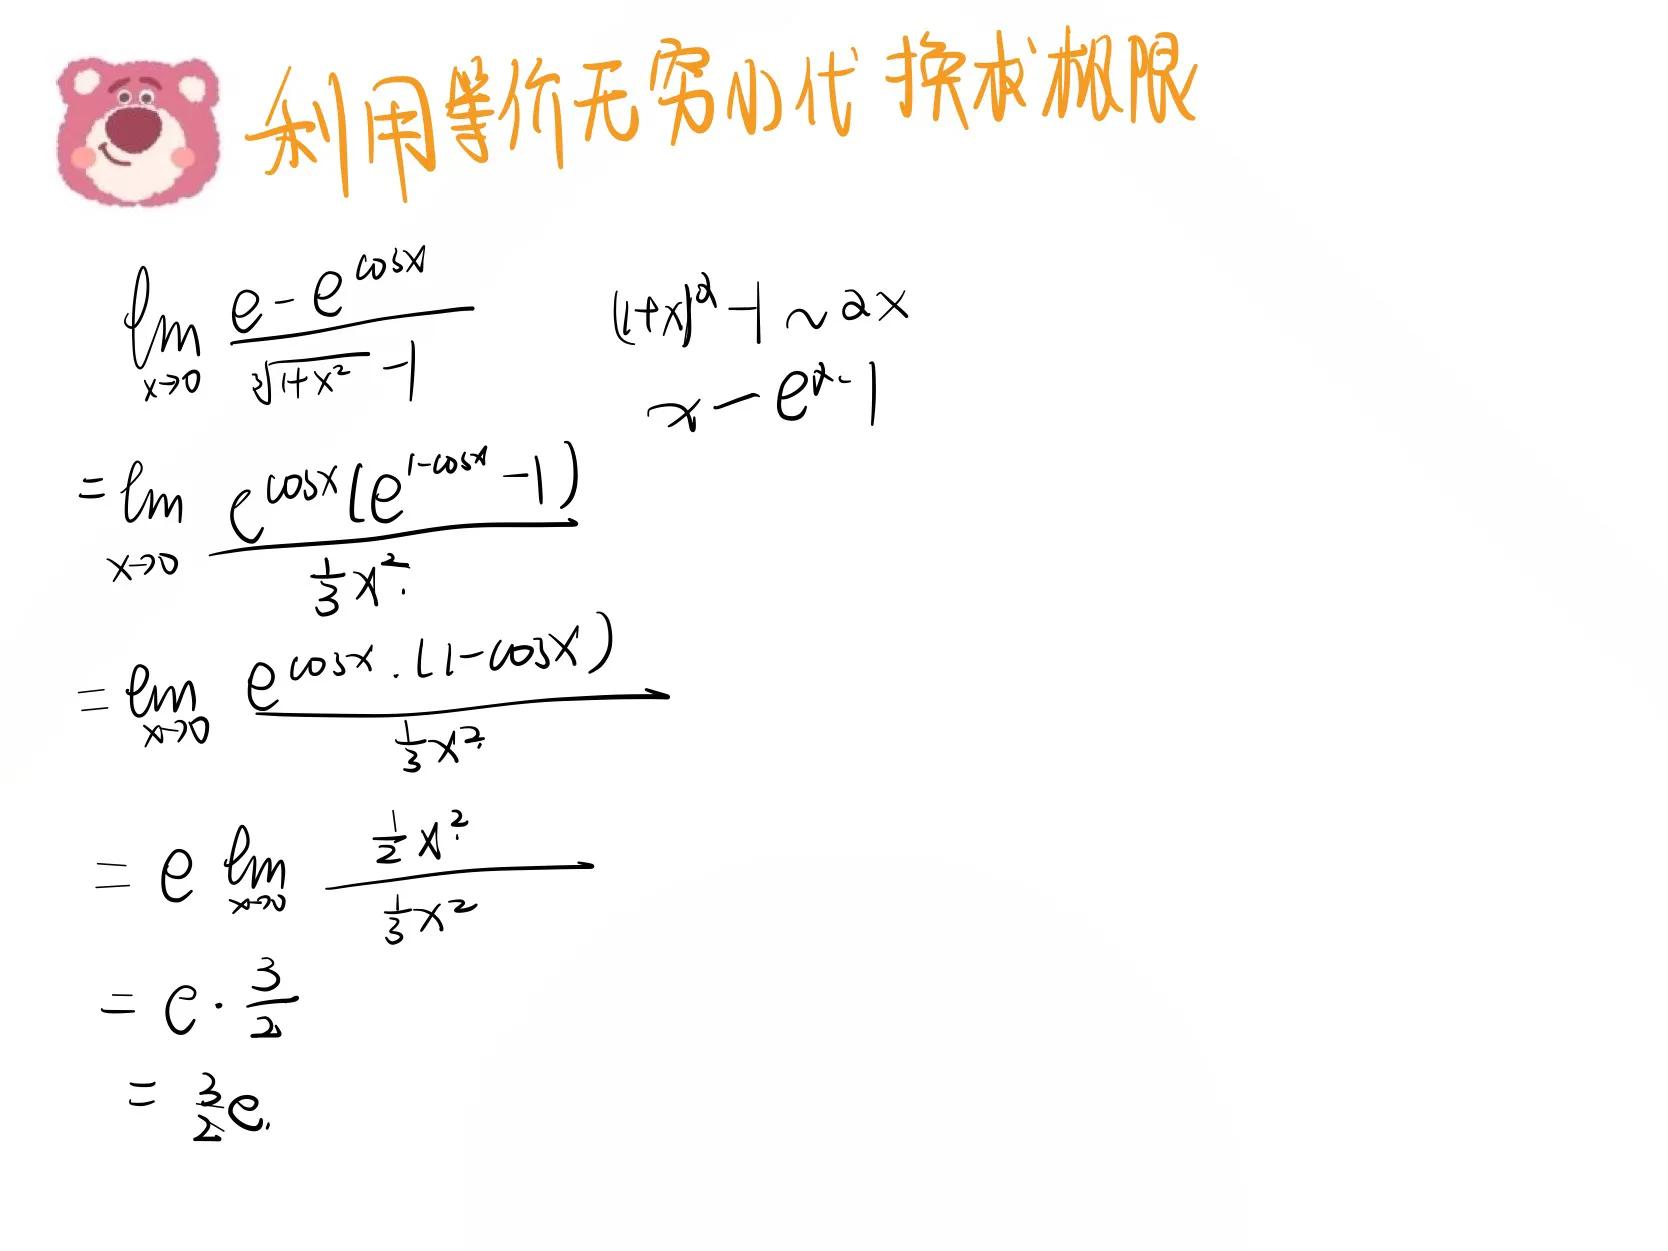 利用等价无穷小代换求极限
lim x→0 (e - e^cosx) / (∛(1+x²) - 1)
(1+x)^α - 1 ~ αx
x — e^x - 1
= lim x→0 e^cosx (e^(1-cosx) - 1) / (1/3 x²)
= lim x→0 e^cosx · (1-cosx) / (1/3 x²)
= e lim x→0 (1/2 x²) / (1/3 x²)
= e · 3/2
= 3/2 e.